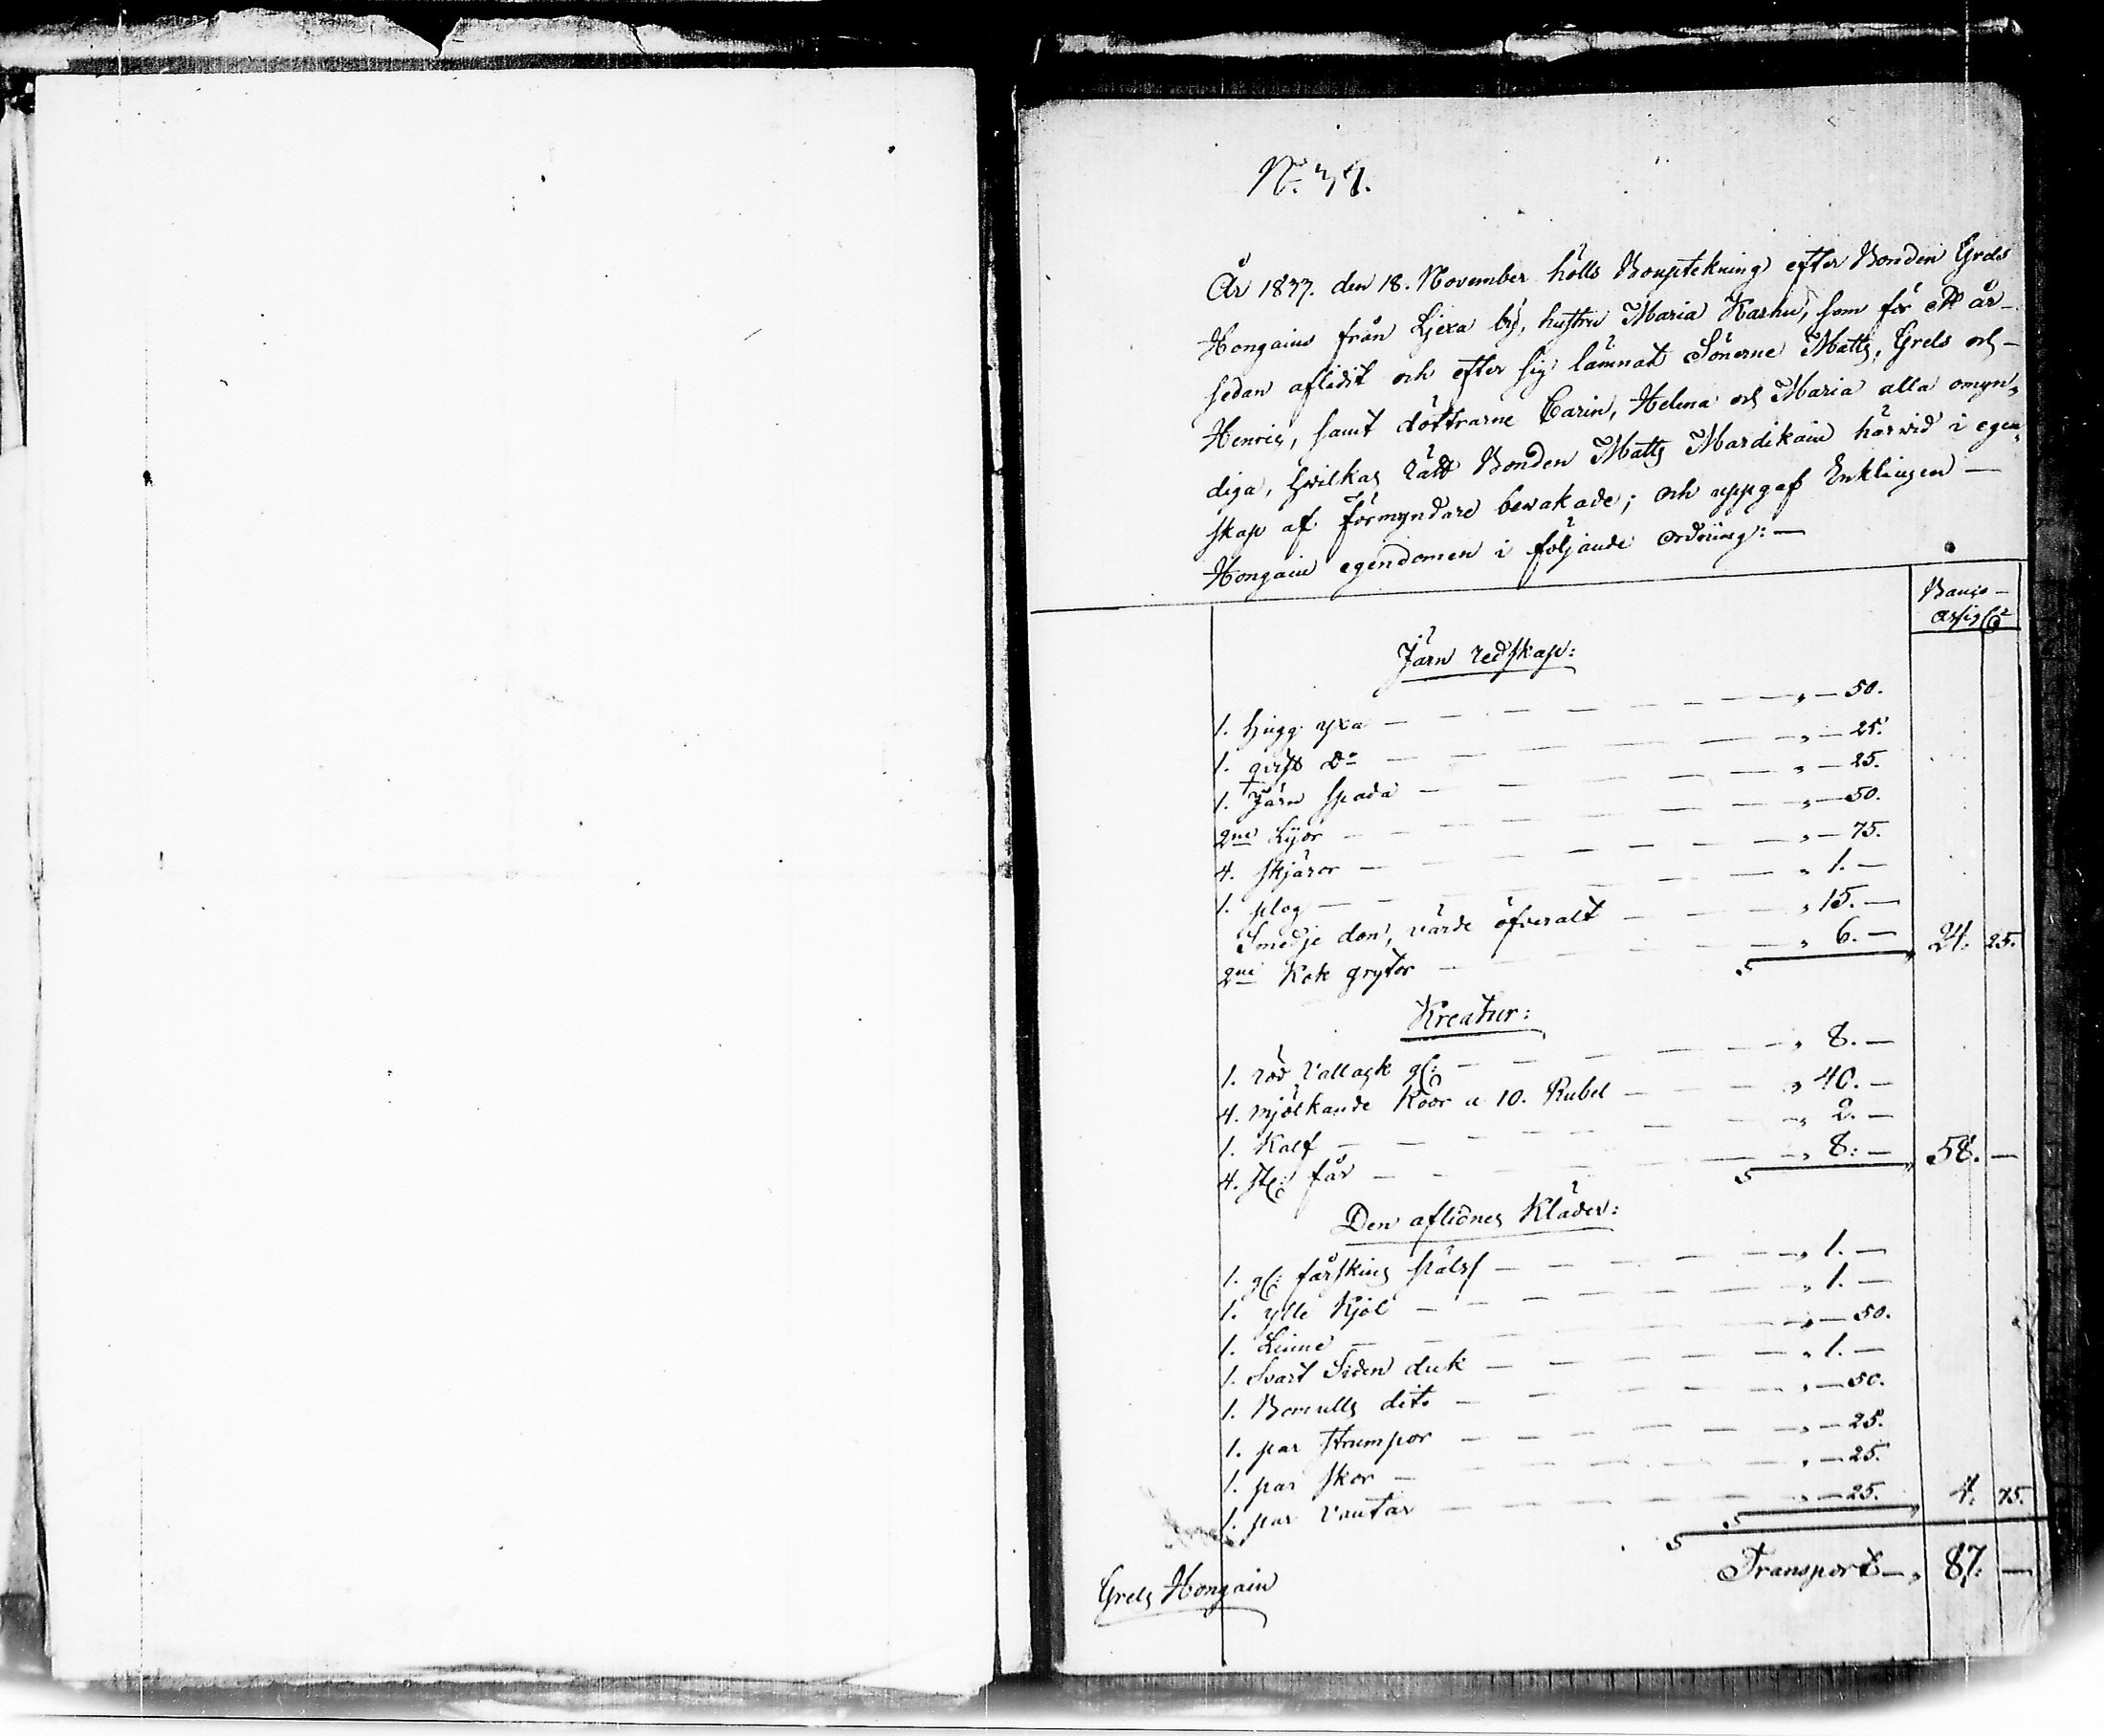 År 1837. den 18. November hölls Bouptekning efter Bonden Grels
Hongains från Ljexa by, hustru Maria Karhu, som för ett år
sedan aflidit och efter sig lämnat Sönerne Matts, Grels och
Henric, samt döttrarne Carin, Helena och Maria alla omyn-
diga, hvilkas rätt Bonden Matts Mardikain härvid i egen-
skap af förmyndare bevakade; och uppgaf Enklingen
Hongain egendomen i följande ordning:
Banco
Assig:
Järn redskap:
1. hugg yxa — " — 50.
1. qvist do — " — 25.
1. Järn spada — " — 25.
2ne Lijor — " — 50.
4. skjäror — " — 75.
1. plog — " 1. —
Smedje don, värde öfveralt — " 15. —
2ne Kok grytor — " 6. — 24. 25.
Kreatur:
1. röd vallack gl: — " 8. —
4. mjölkande Koor a 10. Rubel — " 40. —
1. Kalf — " 2. —
4. st: får — " 8. — 58. —
Den aflidnes Kläder:
1. gl: fårskins päls — " 1. —
1. ylle Kjol — " 1. —
1. Linne — " — 50.
1. Svart Siden duk — " 1. —
1. Bomulls dito — " — 50.
1. par strumpor — " — 25.
1. par skor — " — 25.
1. par vantar — " — 25. 4. 75.
Transport — " 87. —
Grels Hongain